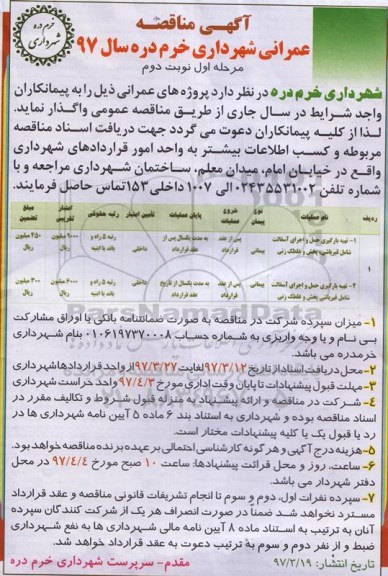 آگهی مناقصه
عمرانی شهرداری خرم دره سال ۹۷
مرحله اول نوبت دوم
خرم دره
شهرداری
شهرداری خرم دره در نظر دارد پروژه های عمرانی ذیل را به پیمانکاران
واجد شرایط در سال جاری از طریق مناقصه عمومی واگذار نماید.
لذا از کلیه پیمانکاران دعوت می گردد جهت دریافت اسناد مناقصه
مربوطه و کسب اطلاعات بیشتر به واحد امور قراردادهای شهرداری
واقع در خیابان امام، میدان معلم، ساختمان شهرداری مراجعه و با
شماره تلفن ۰۲۴۳۵۵۳۱۰۰۲ الی ۱۰۰۷ داخلی ۱۵۳ تماس حاصل فرمایند.
ردیف نام عملیات نوع پیمان شروع عملیات پایان عملیات تأمین اعتبار رتبه حقوقی اعتبار تقریبی مبلغ تضمین
۱ ۱- تهیه بارگیری حمل و اجرای آسفالت شامل قیرپاشی، پخش و غلطک زنی پیمانی پس از عقد قرارداد به مدت یکسال پس از عقد قرارداد داخلی رتبه ۵ راه و باند یا ابنیه ۹۰۰۰ میلیون ریال ۴۵۰ میلیون ریال
۲- تهیه بارگیری حمل و اجرای آسفالت شامل قیرپاشی، پخش و غلطک زنی پیمانی پس از عقد قرارداد به مدت یکسال از تاریخ عقد قرارداد داخلی رتبه ۵ راه و باند یا ابنیه ۶۰۰۰ میلیون ریال ۳۰۰ میلیون ریال
۱- میزان سپرده شرکت در مناقصه به صورت ضمانتنامه بانکی یا اوراق مشارکت
بی نام و یا وجه واریزی به شماره حساب ۰۱۰۶۱۹۷۳۷۰۰۰۸ بنام شهرداری
خرمدره می باشد.
۲- محل دریافت اسناد از تاریخ ۹۷/۳/۱۲ لغایت ۹۷/۳/۲۷ از واحد قراردادها شهرداری
۳- مهلت قبول پیشنهادات تا پایان وقت اداری مورخ ۹۷/۴/۳ واحد حراست شهرداری
۴- شرکت در مناقصه و ارائه پیشنهاد به منزله قبول شروط و تکالیف مقرر در
اسناد مناقصه بوده و شهرداری به استناد بند ۶ ماده ۵ آیین نامه شهرداری ها در
رد یا قبول یک یا کلیه پیشنهادات مختار است.
۵- هزینه درج آگهی و هر گونه کارشناسی احتمالی بر عهده برنده مناقصه خواهد بود.
۶- ساعت، روز و محل قرائت پیشنهادها: ساعت ۱۰ صبح مورخ ۹۷/۴/۴ در محل
دفتر شهردار می باشد.
۷- سپرده نفرات اول، دوم و سوم تا انجام تشریفات قانونی مناقصه و عقد قرارداد
مسترد نخواهد شد ضمناً در صورت انصراف هر یک از شرکت کنندگان سپرده
آنان به ترتیب به استناد ماده ۸ آیین نامه مالی شهرداری ها به نفع شهرداری
ضبط و از نفر دوم و سوم به ترتیب دعوت به عقد قرارداد خواهد شد.
تاریخ انتشار: ۹۷/۳/۱۹
مقدم- سرپرست شهرداری خرم دره